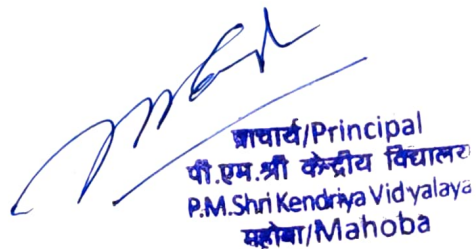 प्राचार्य/Principal
पी.एम.श्री केन्द्रीय विद्यालय
P.M.Shri Kendriya Vidyalaya
महोबा/Mahoba